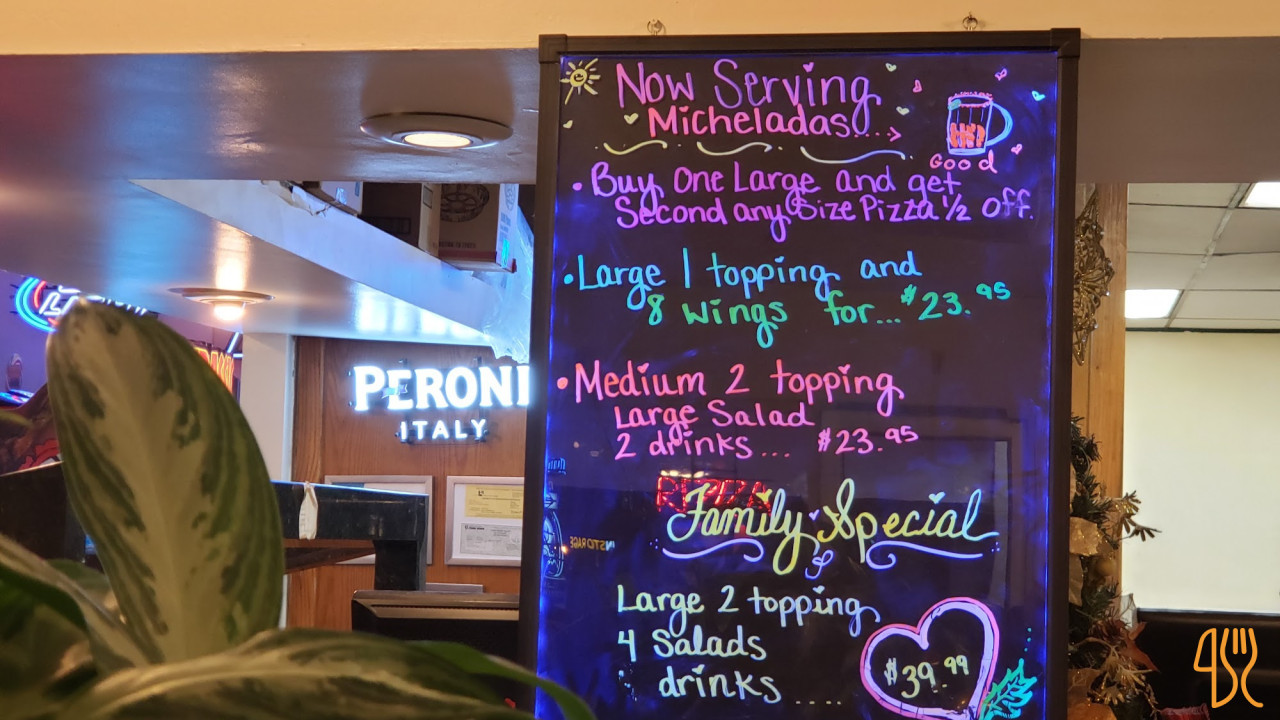 Now Serving
Micheladas...
Good
• Buy One Large and get
Second any Size Pizza ½ off.
• Large 1 topping and
8 wings for... $23.95
• Medium 2 topping
Large Salad
2 drinks... $23.95
Family Special
Large 2 topping
4 Salads
drinks ....
$39.99
PERONI
ITALY